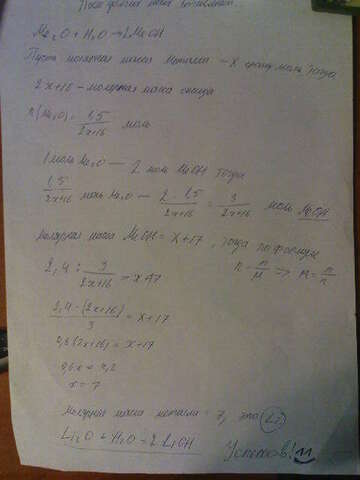 Me₂O + H₂O → 2MeOH
Пусть молярная масса металла – x грамм/моль тогда
2x+16 – молярная масса оксида
n(Me₂O) = 1,5 / 2x+16 моль
1 моль Me₂O — 2 моль MeOH тогда
1,5 / 2x+16 моль Me₂O — 2 · 1,5 / 2x+16 = 3 / 2x+16 моль MeOH
Молярная масса MeOH = x+17, тогда по формуле
n = m / M => M = m / n
2,4 : 3 / 2x+16 = x+17
2,4 · (2x+16) / 3 = x+17
0,8(2x+16) = x+17
0,6x = 4,2
x = 7
Молярная масса металла = 7, это Li
Li₂O + H₂O = 2LiOH
Успехов!